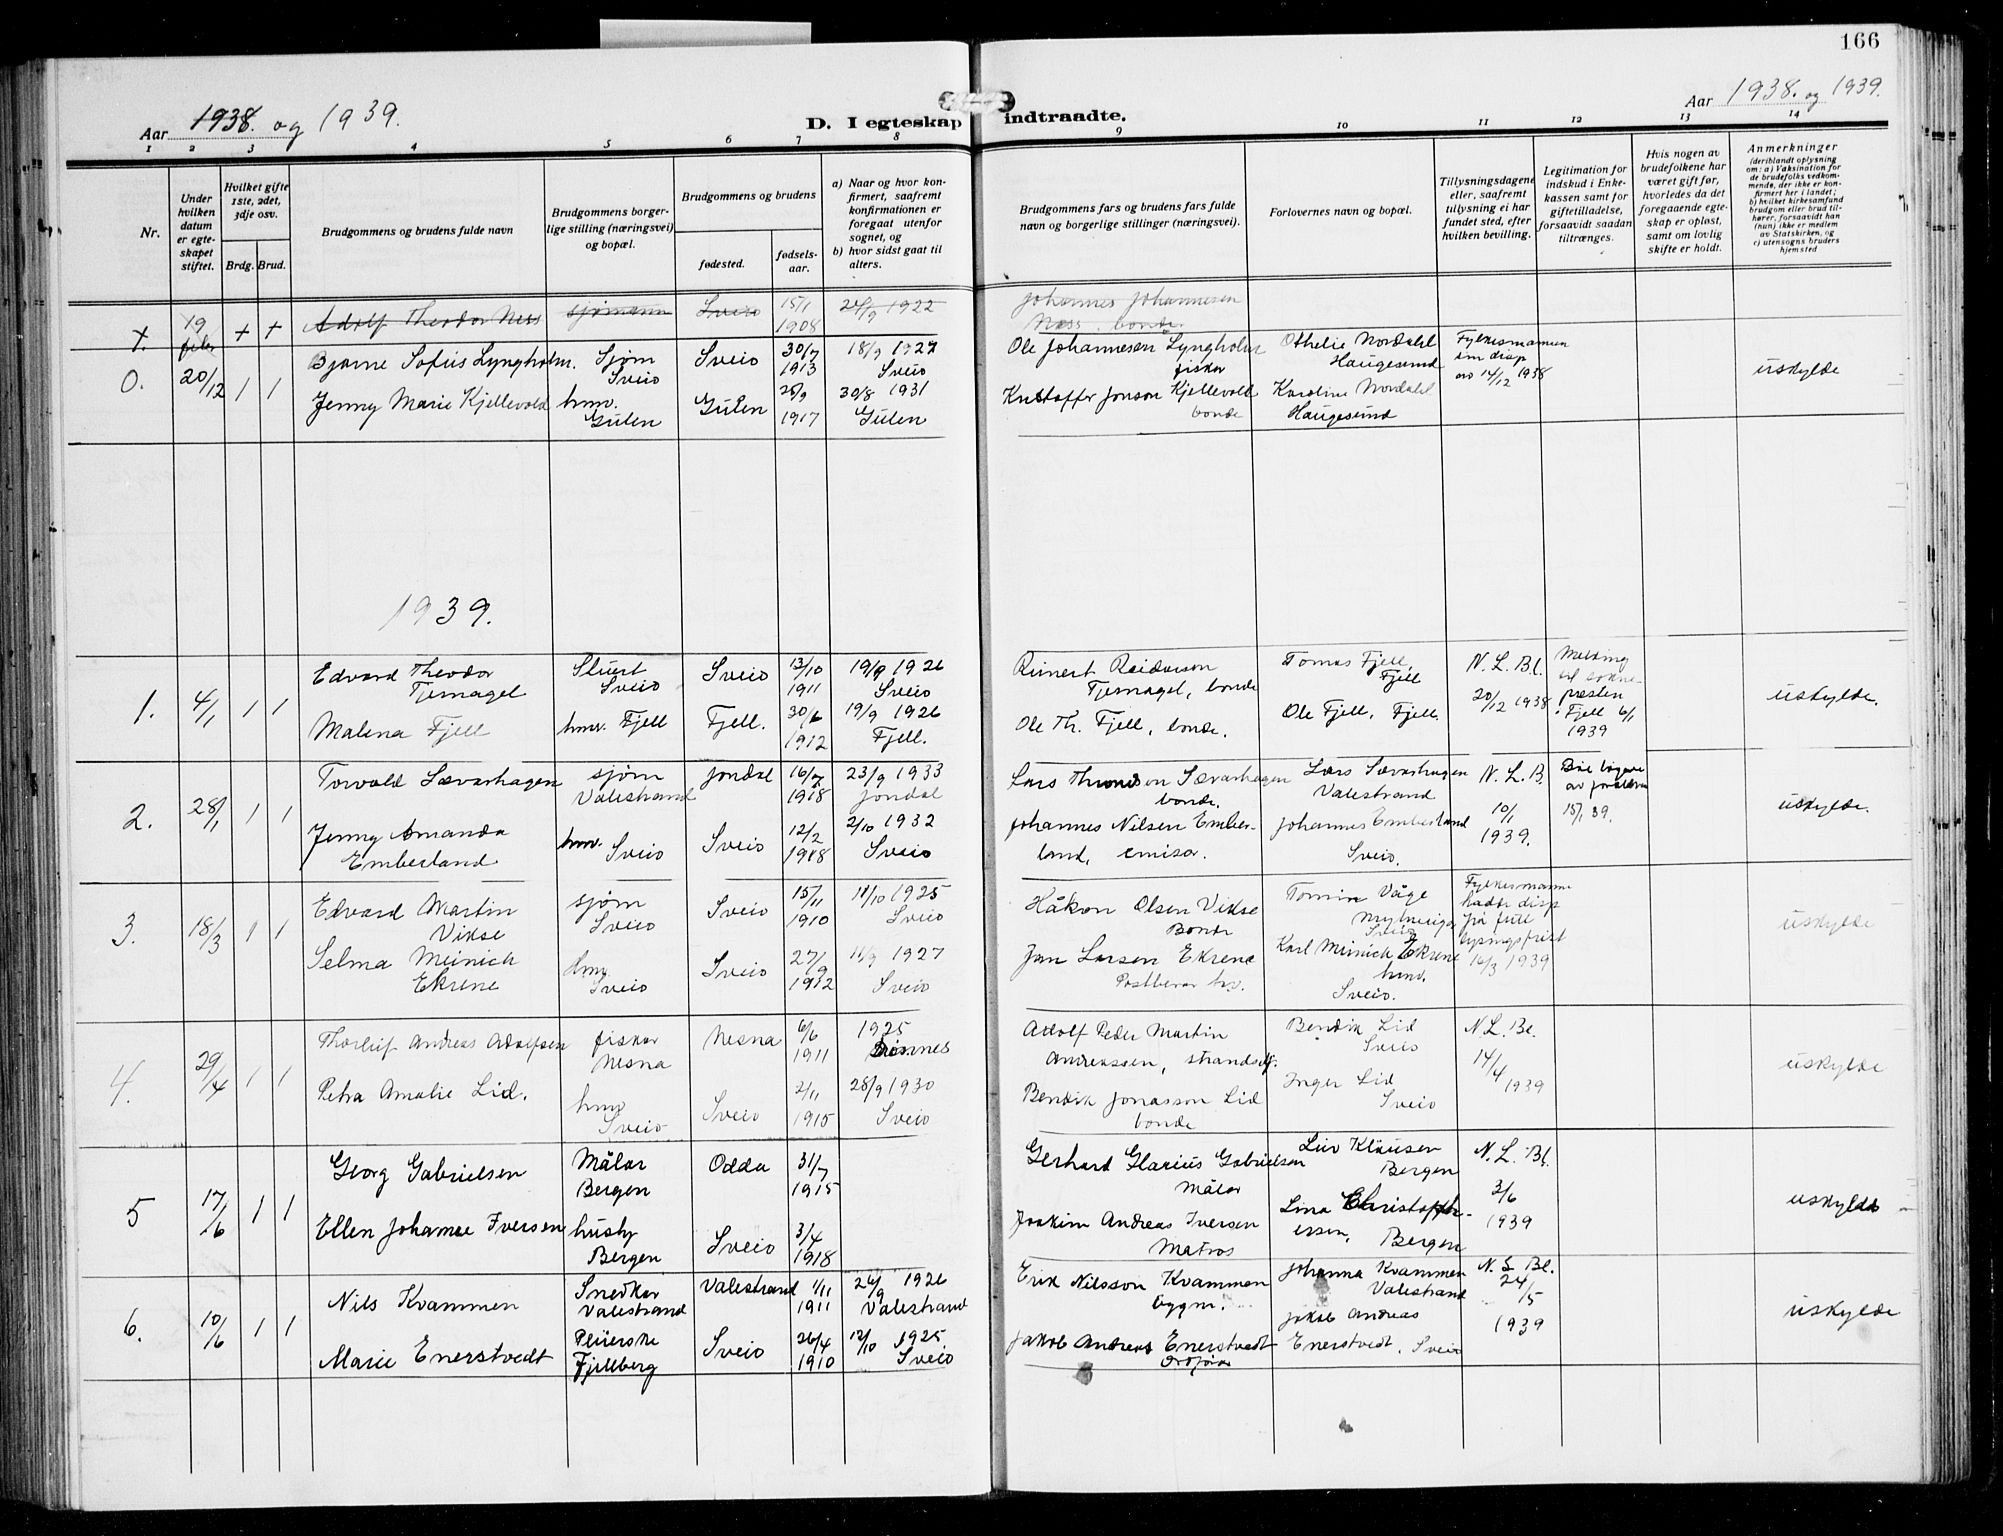 166
Aar 1938. og 1939.
D. I egteskap indtraadte.
Aar 1938. og 1939.
1 2 3 4 5 6 7 8 9 10 11 12 13 14
Nr.
Under hvilken datum er egteskapet stiftet.
Hvilket gifte 1ste, 2det, 3dje osv.
Brdg. Brud.
Brudgommens og brudens fulde navn
Brudgommens borgerlige stilling (næringsvei) og bopæl.
Brudgommens og brudens
fødested.
fødselsaar.
a) Naar og hvor konfirmert, saafremt konfirmationen er foregaat utenfor sognet, og
b) hvor sidst gaat til alters.
Brudgommens fars og brudens fars fulde navn og borgerlige stillinger (næringsvei).
Forlovernes navn og bopæl.
Tillysningsdagene eller, saafremt tillysning ei har fundet sted, efter hvilken bevilling.
Legitimation for indskud i Enkekassen samt for giftetilladelse, forsaavidt saadan tiltrænges.
Hvis nogen av brudefolkene har været gift før, hvorledes da det foregaaende egteskap er opløst, samt om lovlig skifte er holdt.
Anmerkninger
(deriblandt oplysning om: a) Vaksination for de brudefolks vedkommende, der ikke er konfirmert her i landet; b) hvilket kirkesamfund brudgom eller brud tilhører, forsaavidt han (hun) ikke er medlem av Statskirken, og c) utensogns bruders hjemsted
+. 19 + + Adolf Theodor Ness sjømann Sveio 15/1 1908 24/9 1922 Johannes Johannesen Næss. bonde.
0. 20/12 1 1 Bjarne Sofus Lyngholm. Sjøm Sveio Sveio 30/7 1913 18/9 1927 Sveio Ole Johannesen Lyngholm fisker Othelie Nordahl Haugesund Fylkesmannen 14/12 1938 uskylde
Jenny Marie Kjellevold hmv. Gulen Gulen 1917 30/8 1931 Gulen Kristoffer Jonson Kjellevold bonde Karoline Nordahl Haugesund
1939.
1. 4/1 1 1 Edvard Theodor Tjernagel Stuert Sveio Sveio 13/10 1911 19/9 1926 Sveio Reinert Reidarson Tjernagel, bonde Tomas Fjell, Fjell N. L. Bl. 20/12 1938 Melding til soknepresten Fjell 6/1 1939 uskylde.
Malena Fjell hmv. Fjell Fjell. 30/6 1912 19/9 1926 Fjell. Ole Th. Fjell, bonde. Ole Fjell, Fjell.
2. 28/1 1 1 Torvald Sævarhagen sjøm Valestrand Jondal 16/7 1918 23/9 1933 Jondal Lars Thronsen Sævarhagen bonde. Lars Sævarhagen Valestrand N. L. B. 10/1 1939. 15/1 39. uskylde.
Jenny Amanda Emberland hmv. Sveio Sveio 12/2 1918 2/10 1932 Sveio Johannes Nilsen Emberland, emisær. Johannes Emberland Sveio.
3. 18/3 1 1 Edvard Martin Vikse sjøm Sveio Sveio 15/11 1910 11/10 1925 Sveio Håkon Olsen Vikse Bonde Tomine Våge Sveio Fylkesmann 16/3 1939 uskylde
Selma Meinich Ekrene Hmv. Sveio Sveio 27/9 1912 11/9 1927 Sveio Jan Larsen Ekrene Postberar Karl Meinich Ekrene Sveio.
4. 29/4 1 1 Thorleif Andreas Adolfsen fiskar Nesna Nesna 6/6 1911 1925 Dønnes Adolf Peder Martin Andreassen, strandsitj. Bendik Lid Sveio N. L. Bl. 14/4 1939 uskylde
Petra Amalie Lid. hmv Sveio Sveio 2/11 1915 28/9 1930 Sveio Bendik Jonasson Lid bonde Inger Lid Sveio
5 17/6 1 1 Georg Gabrielsen Målar Bergen Odda 31/7 1915 Gerhard Glarius Gabrielsen Målar Leiv Klausen Bergen N. L. Bl. 3/6 1939 uskylde
Ellen Johanne Iversen Bergen Sveio 3/4 1918 Joakim Andreas Iversen Matros Lina Christoffersen, Bergen
6. 10/6 1 1 Nils Kvammen Snedker Valestrand Valestrand 1/11 1911 26/9 1926 Valestrand Erik Nilsson Kvammen byggm. Johanna Kvammen Valestrand N. L Bl. 24/5 1939 uskylde
Marie Enerstvedt Pleierske Fjellberg Sveio 26/4 1910 12/10 1925 Sveio Jakob Andreas Enerstvedt Ordfører Jakob Andreas Enerstvedt, Sveio